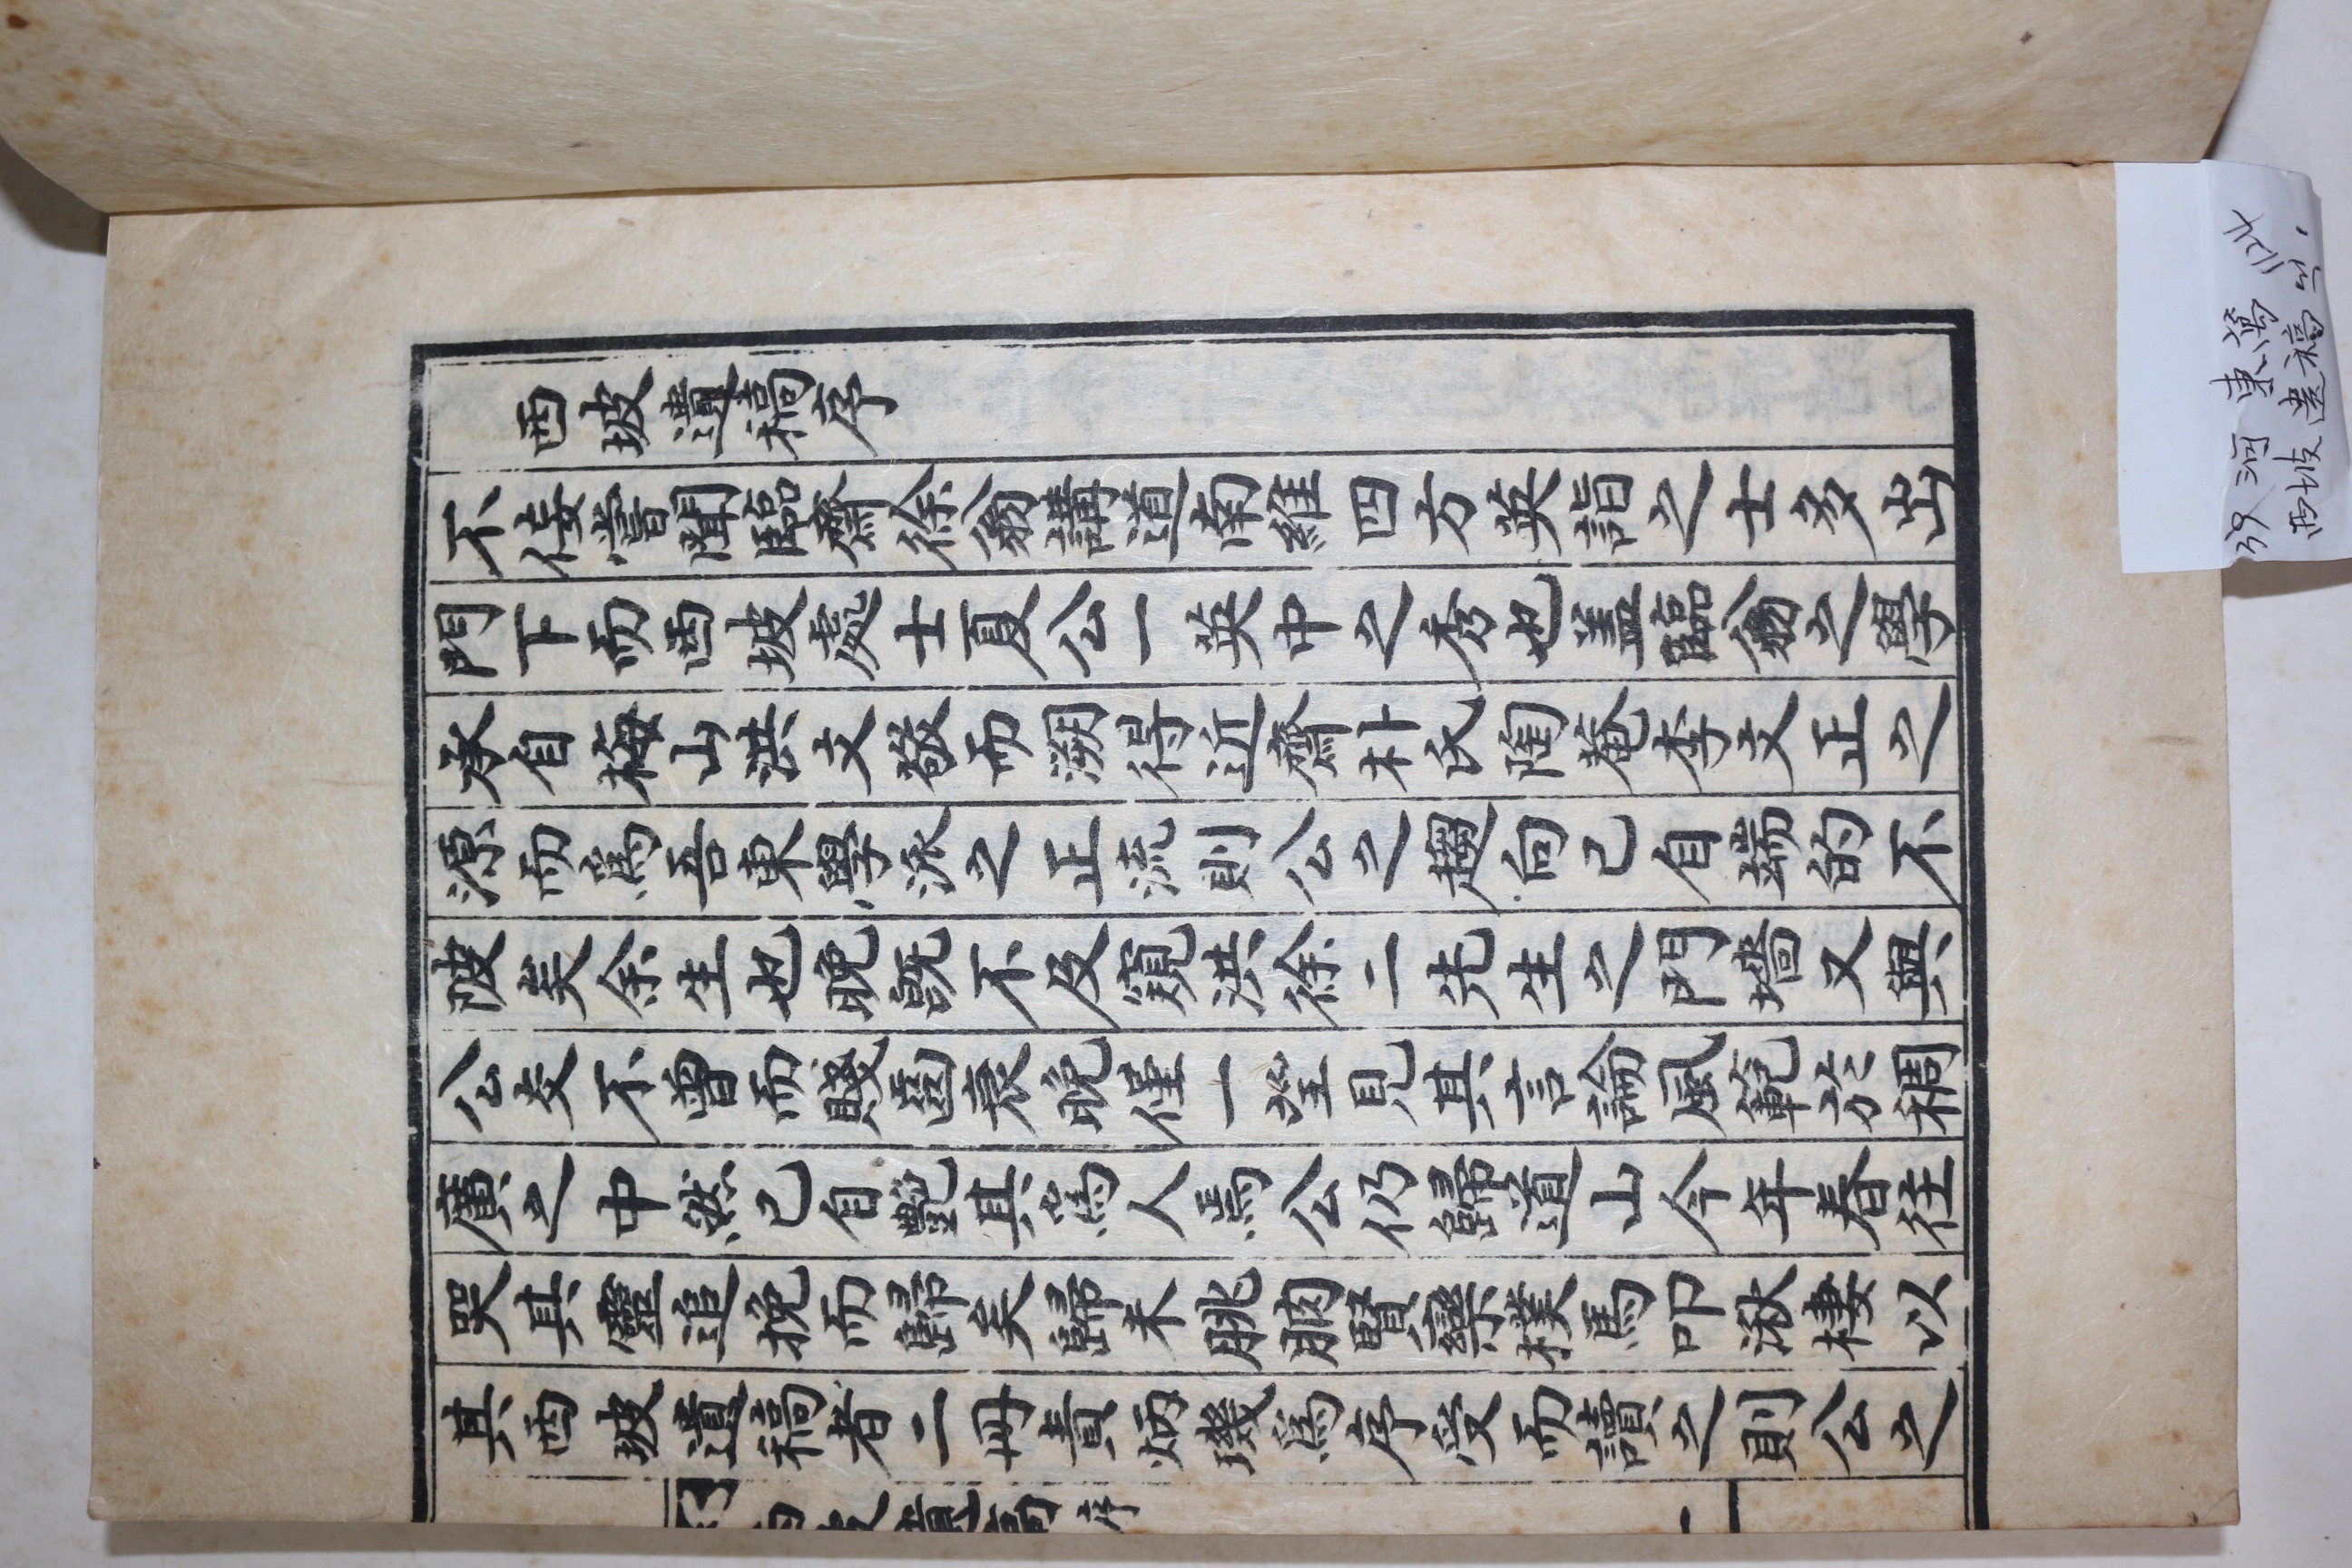 西坡遺稿序
不佞嘗聞臨齋徐翁講道南維四方英詣之士多出
門下而西坡處士夏公一英中之秀也盖臨翁之學
承自梅山洪文敬而溯得近齋朴氏陶菴李文正之
源而爲吾東學派之正流則公之趨向已自端的不
陂矣余生也晚旣不及窺洪徐二先生之門墻又與
公交不曾而賤齒衰晚僅一望見其言論風範於稠
廣之中然已自艷其爲人焉公仍歸道山今年春往
哭其靈追挽而歸矣歸未朓朒賢欒樸馬叩湫棲以
其西坡遺稿者二冊責炳璣爲序受而讀之則公之
西坡遺稿 序 一
39 河東萬 1124
西坡遺稿